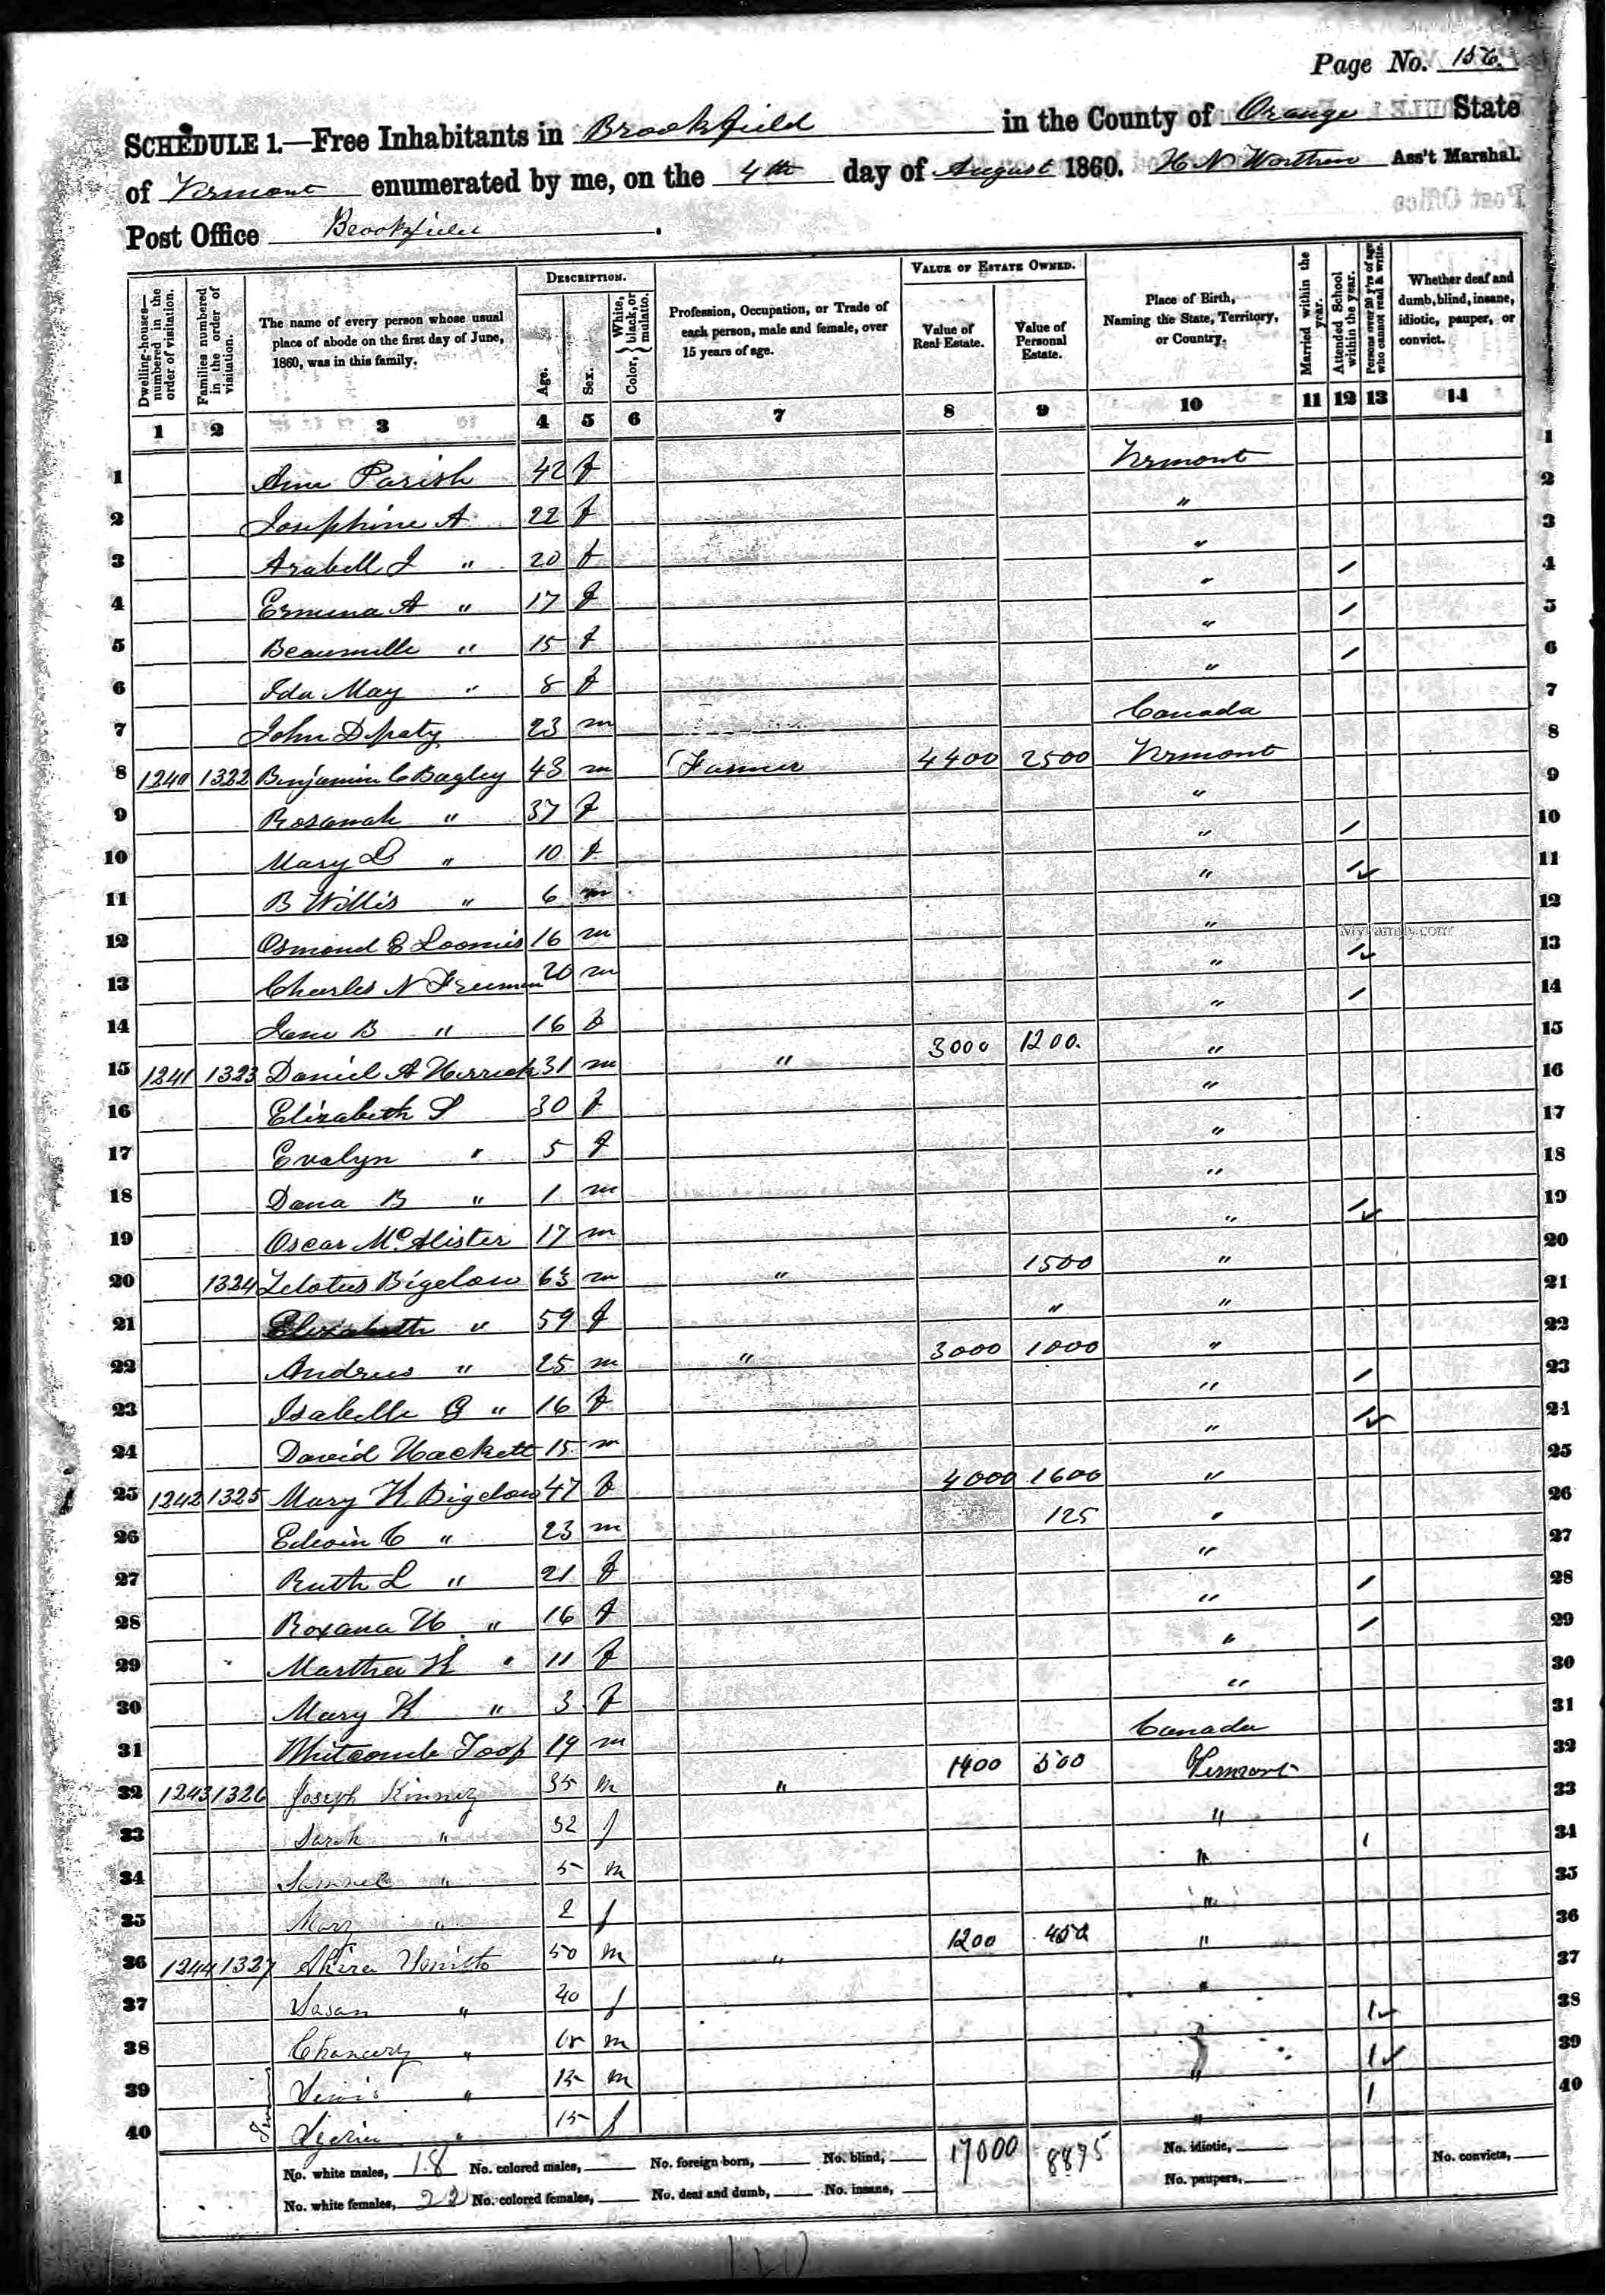 Page No. 156.
SCHEDULE 1.—Free Inhabitants in Brookfield in the County of Orange State
of Vermont enumerated by me, on the 4th day of August 1860. H N Worthen Ass't Marshal.
Post Office Brookfield.
Dwelling-houses—numbered in the order of visitation.
Families numbered in the order of visitation.
The name of every person whose usual place of abode on the first day of June, 1860, was in this family.
DESCRIPTION.
Age.
Sex.
Color, White, black, or mulatto.
Profession, Occupation, or Trade of each person, male and female, over 15 years of age.
VALUE OF ESTATE OWNED.
Value of Real Estate.
Value of Personal Estate.
Place of Birth, Naming the State, Territory, or Country.
Married within the year.
Attended School within the year.
Persons over 20 y'rs of age who cannot read & write.
Whether deaf and dumb, blind, insane, idiotic, pauper, or convict.
1 2 3 4 5 6 7 8 9 10 11 12 13 14
1 Ann Parish 42 f Vermont 1
2 Josephine A 22 f " 2
3 Arabell J " 20 f " 3
4 Ermina A " 17 f " / 4
5 Beaumelle " 15 f " / 5
6 Ida May " 8 f " / 6
7 John Depaty 23 m Canada 7
8 1240 1322 Benjamin C Bagley 43 m Farmer 4400 2500 Vermont 8
9 Rosanah " 37 f " 9
10 Mary D " 10 f " / 10
11 B Willis " 6 m " / 11
12 Osmond E Loomis 16 m " 12
13 Charles N Freeman 20 m " / 13
14 Jane B " 16 f " / 14
15 1241 1323 Daniel A Herrick 31 m " 3000 1200. " 15
16 Elizabeth S 30 f " 16
17 Evalyn " 5 f " 17
18 Dana B " 1 m " 18
19 Oscar McAlister 17 m " / 19
20 1324 Zelotus Bigelow 63 m " 1500 " 20
21 Elizabeth " 59 f " " 21
22 Andrus " 25 m " 3000 1000 " 22
23 Isabelle G " 16 f " / 23
24 David Hackett 15 m " / 24
25 1242 1325 Mary K Bigelow 47 f 4000 1600 " 25
26 Edwin C " 23 m 125 " 26
27 Ruth L " 21 f " 27
28 Roxana H " 16 f " / 28
29 Martha K " 11 f " / 29
30 Mary K " 3 f " 30
31 Whitcomb Toop 19 m Canada 31
32 1243 1326 Joseph Kinney 35 m " 1400 500 Vermont 32
33 Sarah " 32 f " 33
34 Samuel " 5 m " 34
35 Mary " 2 f " 35
36 1244 1327 50 m " 1200 450 " 36
37 Susan " 40 f " 37
38 Chancery " m 38
39 Lewis " m " 39
40 " 15 f " 40
No. white males, 18 No. colored males, No. foreign born, No. blind, 17000 8875 No. idiotic, No. convicts,
No. white females, 22 No. colored females, No. deaf and dumb, No. insane, No. paupers,
MyFamily.com